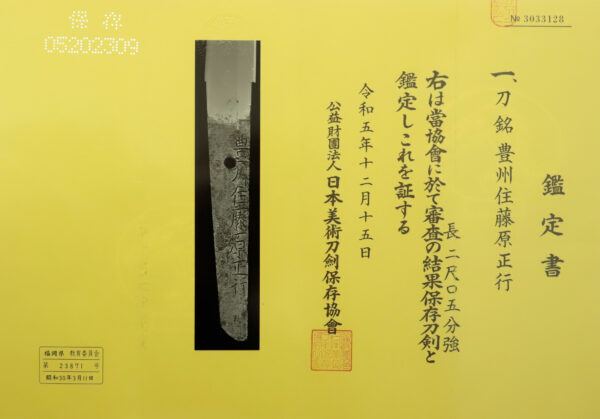 保存
05202309
№ 3033128
鑑定書
一、刀 銘 豊州住藤原正行
長 二尺〇五分強
右は當協會に於て審査の結果保存刀剣と
鑑定しこれを証する
令和五年十二月十五日
公益財團法人 日本美術刀劍保存協會
豊州住藤原正行
福岡県 教育委員会
第 23871 号
昭和30年3月11日